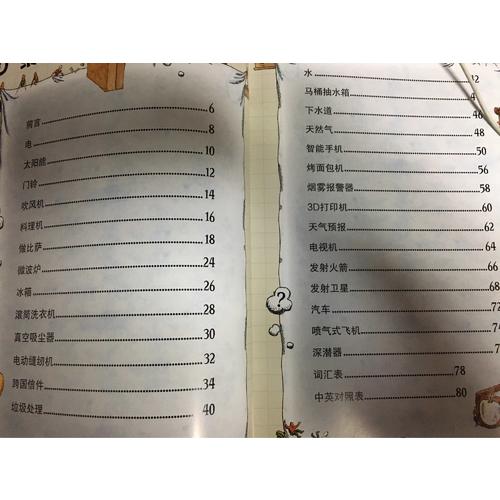 前言 6
电 8
太阳能 10
门铃 12
吹风机 14
料理机 16
做比萨 18
微波炉 24
冰箱 26
滚筒洗衣机 28
真空吸尘器 30
电动缝纫机 32
跨国信件 34
垃圾处理 40
水
马桶抽水箱
下水道 46
天然气 48
智能手机 50
烤面包机 56
烟雾报警器 58
3D打印机 60
天气预报 62
电视机 64
发射火箭 66
发射卫星 68
汽车 72
喷气式飞机
深潜器
词汇表 78
中英对照表 80
?